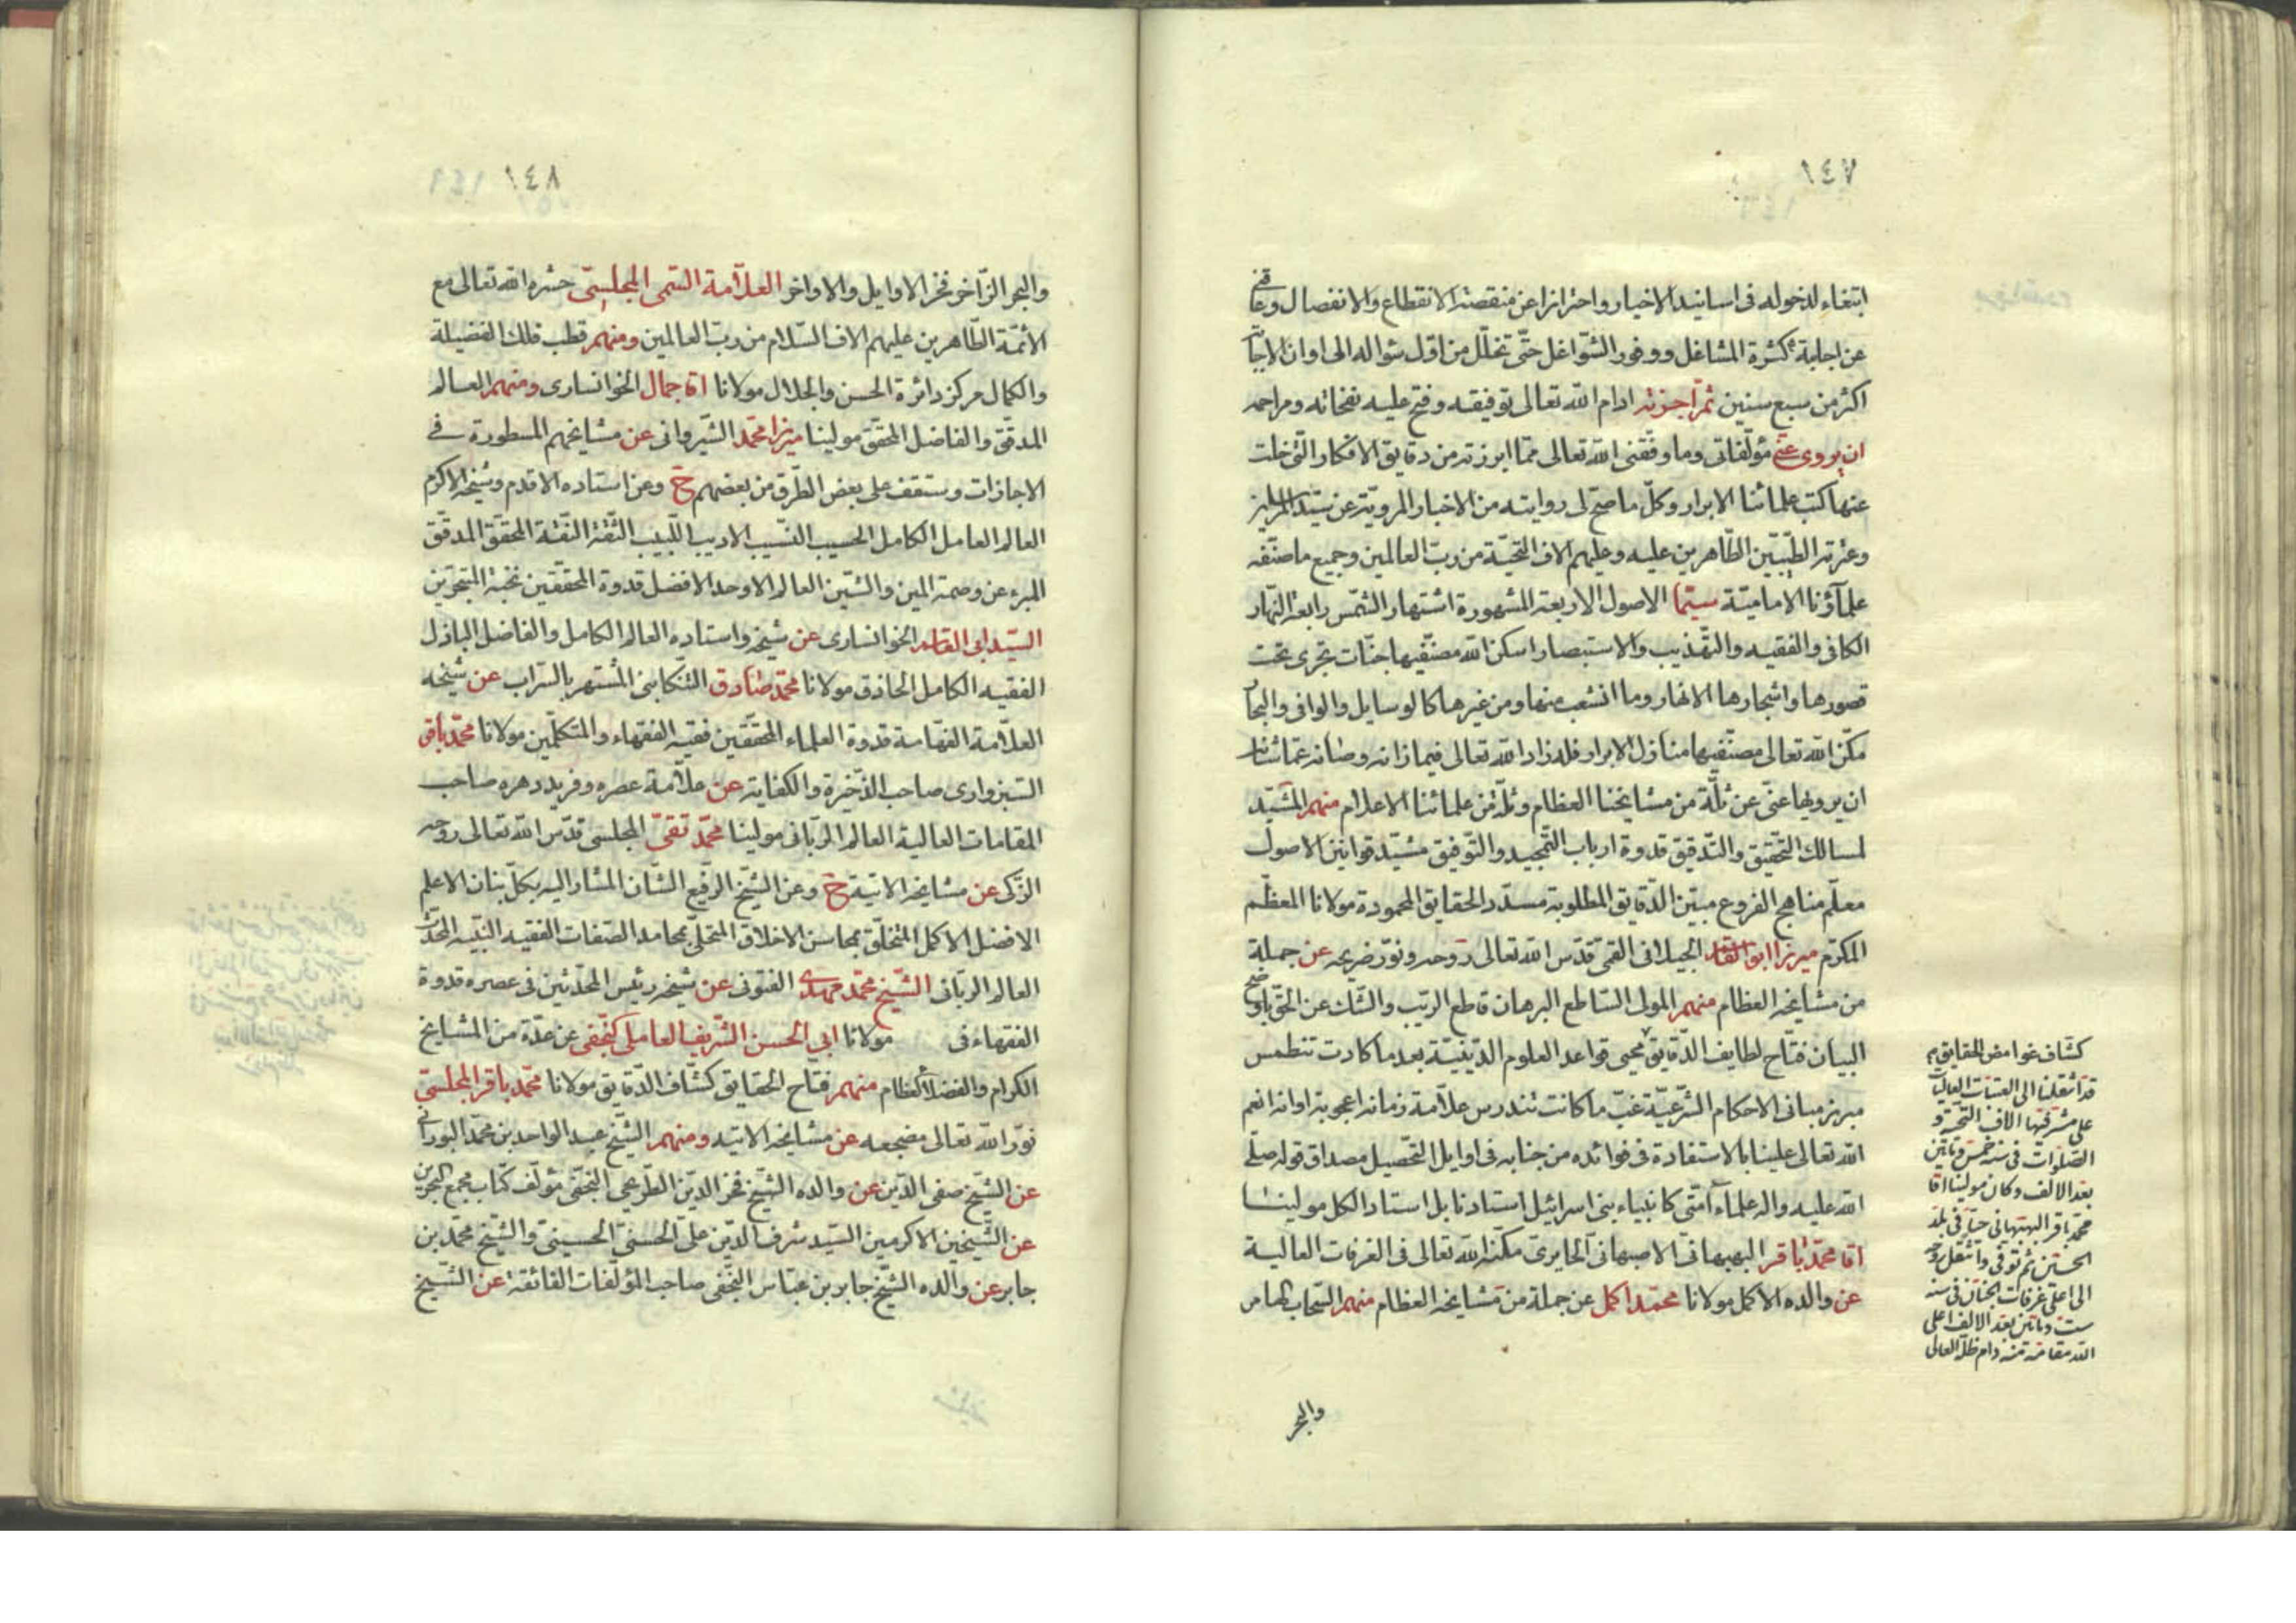 ١٤٧
ابتغاء لدخوله فى اسانيد الاخيار واحترازا عن منقصة الانقطاع والانفصال وعاقنى
عن اجابته كثرة المشاغل ووفور الشواغل حتى تخلل من اول سؤاله الى اوان الاجابة
اكثر من سبع سنين ثم اجزته ادام الله تعالى توفيقه وفتح عليه نفحاته ومراحمه
ان يروى عنى مؤلفاتى وما وفقنى الله تعالى مما ابرزته من دقايق الافكار التى خلت
عنها كتب علمائنا الابرار وكل ما صح لى روايته من الاخبار المروية عن سيد المرسلين
وعترته الطيبين الطاهرين عليه وعليهم الاف التحية من رب العالمين وجميع ما صنفه
علماؤنا الامامية سيما الاصول الاربعة المشهورة اشتهار الشمس رابعة النهار
الكافى والفقيه والتهذيب والاستبصار اسكن الله مصنفيها جنات تجرى تحت
قصورها واشجارها الانهار وما انشعب منها ومن غيرها كالوسايل والوافى والبحار
مكن الله تعالى مصنفيها منازل الابرار فله زاد الله تعالى فيما زانه وصانه عما شانه
ان يرويها عنى عن ثلة من مشايخنا العظام وثلة من علمائنا الاعلام منهم المشيد
لمسالك التحقيق والتدقيق قدوة ارباب التمجيد والتوفيق مشيد قوانين الاصول
معلم مناهج الفروع مبين الدقايق المطلوبة مسدد الحقايق المحمودة مولانا المعظم
المكرم ميرزا ابو القاسم الجيلانى القمى قدس الله تعالى روحه ونور ضريحه عن جملة
من مشايخه العظام منهم المولى الساطع البرهان قاطع الريب والشك عن الحق باوضح
البيان فتاح لطايف الدقايق محيى قواعد العلوم الدينية بعد ما كادت تنطمس
مبرز مبانى الاحكام الشرعية غب ما كانت تندرس علامة زمانه اعجوبة اوانه انعم
الله تعالى علينا بالاستفادة فى فوائده من جنابه فى اوايل التحصيل مصداق قوله صلى
الله عليه واله علماء امتى كانبياء بنى اسرائيل استادنا بل استاد الكل مولينا
اقا محمد باقر البهبهانى الاصبهانى الحايرى مكنه الله تعالى فى الغرفات العالية
عن والده الاكمل مولانا محمد اكمل عن جملة من مشايخه العظام منهم السحاب الهامر
كشاف غوامض الحقايق
قد انتقلنا الى العتبات العاليات
على مشرفيها الاف التحية و
الصلوات فى سنة خمس ومأتين
بعد الالف وكان مولينا اقا
محمد باقر البهبهانى حيا فى بلد
الحسين ثم توفى وانتقل روحه
الى اعلى غرفات الجنان فى سنة
ست ومأتين بعد الالف اعلى
الله مقامه منه دام ظله العالى
والبحر
١٤٨
والبحر الزاخر فخر الاوايل والاواخر العلامة السمى المجلسى حشره الله تعالى مع
الائمة الطاهرين عليهم الاف السلام من رب العالمين ومنهم قطب فلك الفضيلة
والكمال مركز دائرة الحسن والجلال مولانا اقا جمال الخوانسارى ومنهم العالم
المدقق والفاضل المحقق مولينا ميرزا محمد الشيروانى عن مشايخهم المسطورة فى
الاجازات وستقف على بعض الطرق من بعضهم ح وعن استاده الاقدم وشيخه الاكرم
العالم العامل الكامل الحسيب النسيب الاديب اللبيب الثقة النقة المحقق المدقق
المبرء عن وصمة المين والشين العالم الاوحد الافضل قدوة المحققين نخبة المتبحرين
السيد ابى القاسم الخوانسارى عن شيخه واستاده العالم الكامل والفاضل الباذل
الفقيه الكامل الحاذق مولانا محمد صادق التنكابنى المشتهر بالسراب عن شيخه
العلامة الفهامة قدوة العلماء المحققين فقيه الفقهاء والمتكلمين مولانا محمد باقر
السبزوارى صاحب الذخيرة والكفاية عن علامة عصره وفريد دهره صاحب
المقامات العالية العالم الربانى مولينا محمد تقى المجلسى قدس الله تعالى روحه
الزكى عن مشايخه الاتية ح وعن الشيخ الرفيع الشان المشار اليه بكل بنان الاعلم
الافضل الاكمل المتخلق بمحاسن الاخلاق المتحلى بمحامد الصفات الفقيه النبيه المحدث
العالم الربانى الشيخ محمد مهدى الفتونى عن شيخه رئيس المحدثين فى عصره قدوة
الفقهاء فى مولانا ابى الحسن الشريف العاملى النجفى عن عدة من المشايخ
الكرام والفضلاء العظام منهم فتاح الحقايق كشاف الدقايق مولانا محمد باقر المجلسى
نور الله تعالى مضجعه عن مشايخه الاتيه ومنهم الشيخ عبد الواحد بن محمد البورانى
عن الشيخ صفى الدين عن والده الشيخ فخر الدين الطريحى النجفى مؤلف كتاب مجمع البحرين
عن الشيخين الاكرمين السيد شرف الدين على الحسنى الحسينى والشيخ محمد بن
جابر عن والده الشيخ جابر بن عباس النجفى صاحب المؤلفات الفائقة عن الشيخ